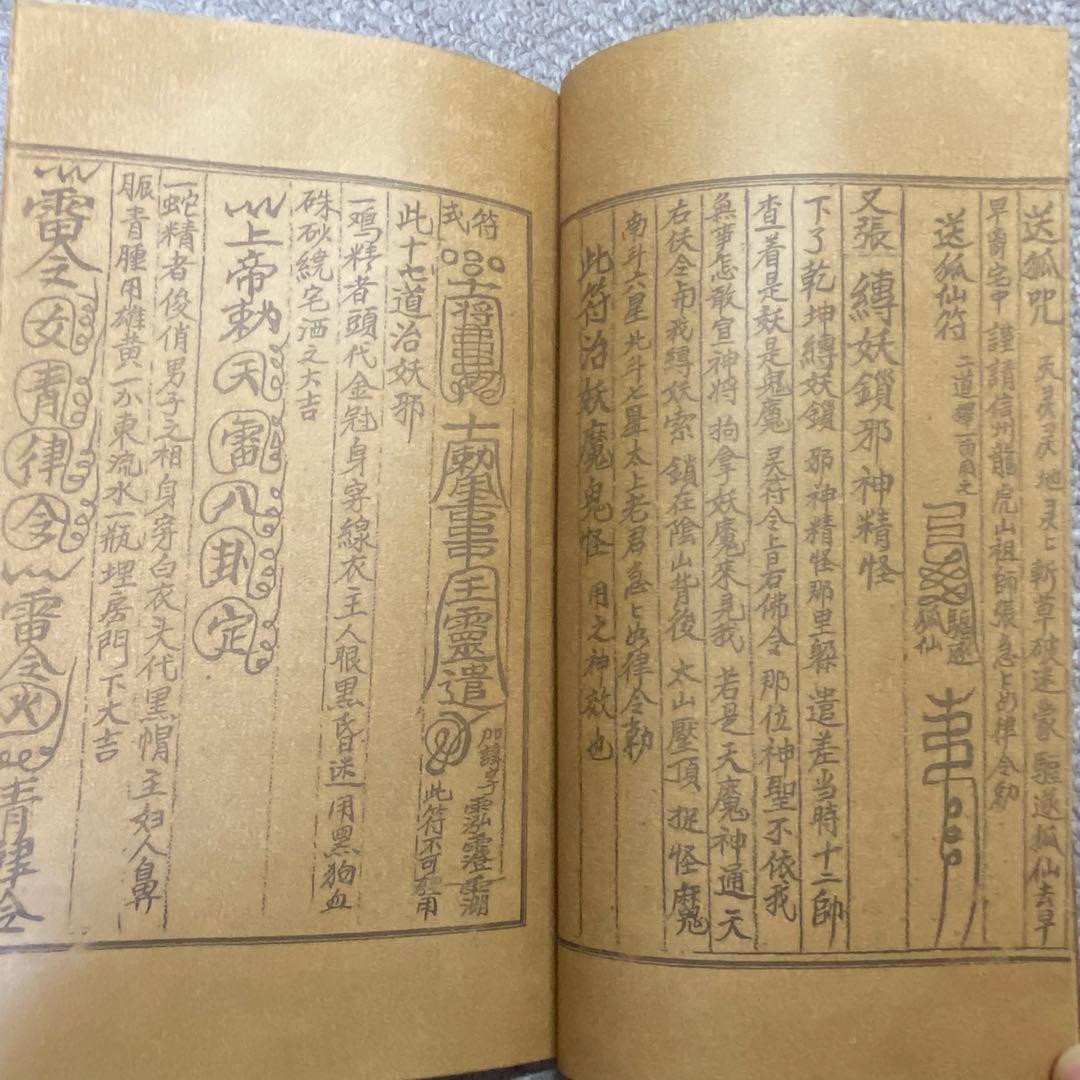 送狐咒 天灵灵地灵上斬草破迷蒙驅逐狐仙去早
早离宅中 謹請信州龍虎山祖師張急上如律令勅
送狐仙符 二道
驅逐
狐仙
又張 縛妖鎖邪神精怪
下了乾坤縛妖鎖 邪神精怪那里躲 遣差当時十二帥
查着是妖是鬼魔 吴符令上君佛令 那位神聖不依我
無事怎敢宣神将 拘拿妖魔來見我 若是天魔神通天
右伏全而我縛妖索 鎖在陰山背後 太山壓頂 捉怪魔
南斗六星北斗七星太上老君急上如律令勅
此符治妖魔鬼怪 用之神效也
符式
王靈遣
加諱字
此符不可輕用
此十七道治妖邪
一鸡精者頭代金冠身穿線衣主人眼黑昏迷用黑狗血
硃砂繞宅洒之大吉
上帝敕天雷八卦定
一蛇精者俊俏男子之相身穿白衣头代黑帽主妇人鼻
脈青腫用雄黄一个東流水一瓶埋房門下大吉
雷令女青律令
雷令火
青律令